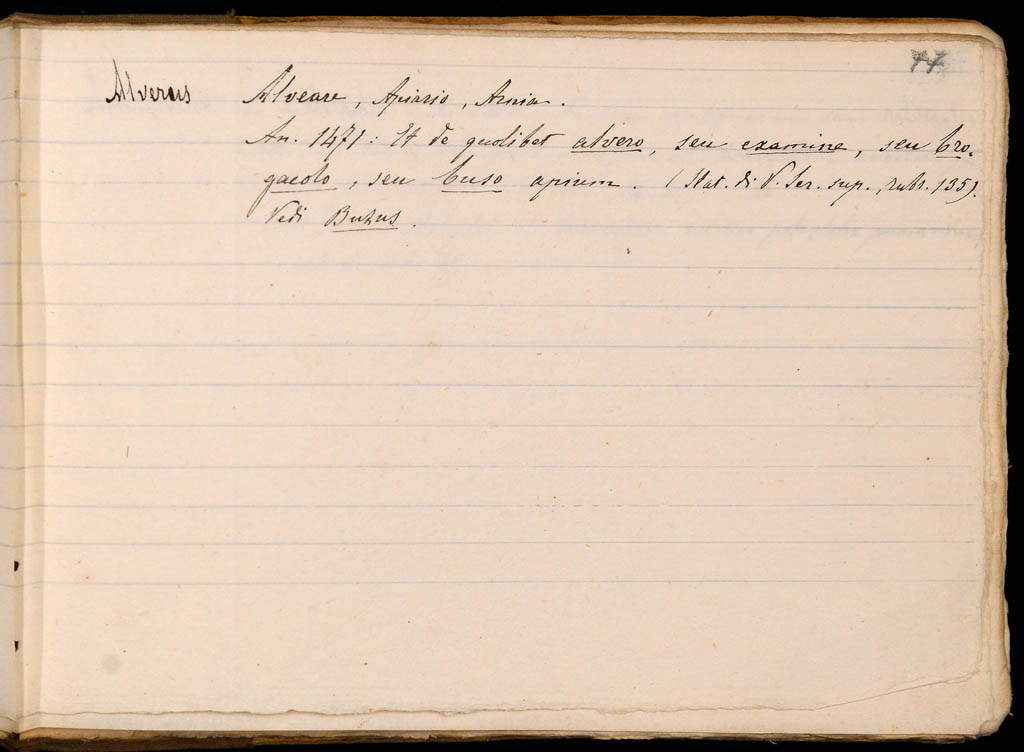 77
Alverus Alveare, Apiario, Arnia.
An. 1471: Et de quolibet alvero, seu examine, seu bro-
gacolo, seu buso apium. (Stat. di V. Ser. sup., rubr. 135).
Vedi Buzus.